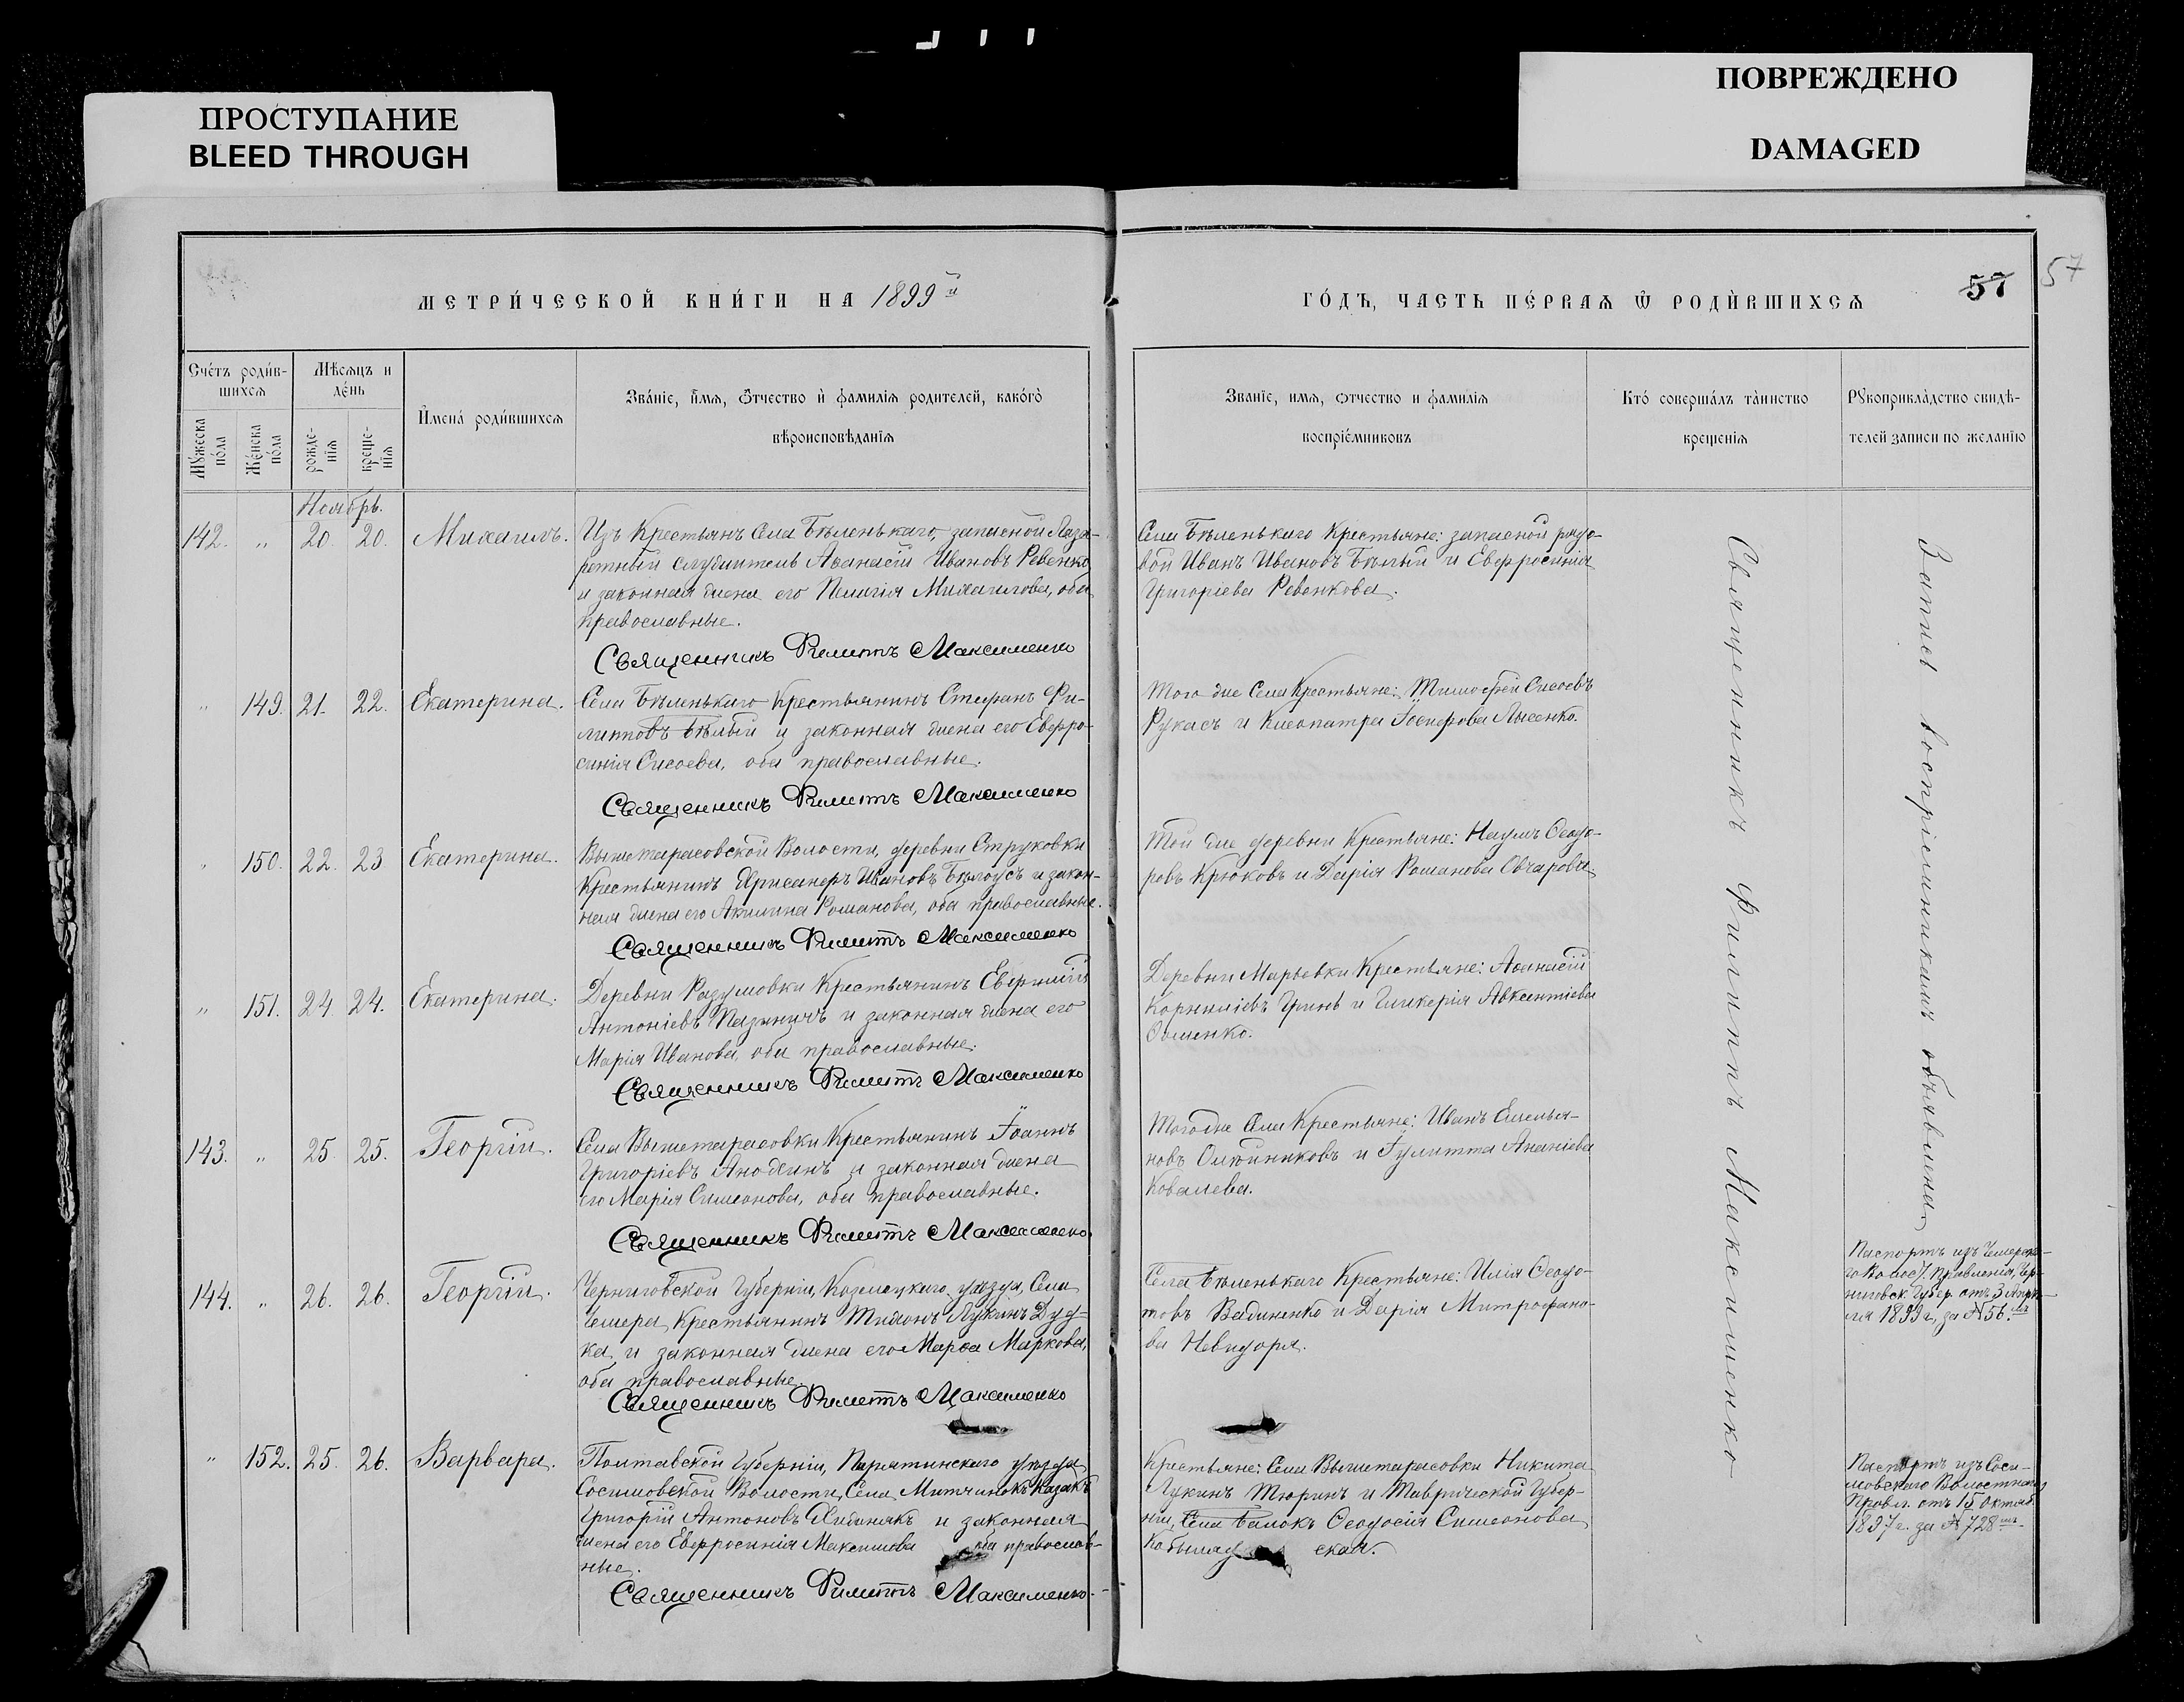 ПРОСТУПАНИЕ
BLEED THROUGH
ПОВРЕЖДЕНО
DAMAGED
МЕТРИ́ЧЕСКОЙ КНИ́ГИ НА 1899й
ГО́ДЪ, ЧАСТЬ ПЕ́РВАѦ Ѿ РОДИ́ВШИХСѦ
57
57
Сче́тъ роди́в-
шихсѧ
Мѣсѧцъ и
де́нь
Мꙋ́жеска
по́ла
Же́нска
по́ла
рожде-
нїѧ
креще-
нїѧ
И҆мена̀ роди́вшихсѧ
Зва́нїе, и҆́мѧ, ѻ҆́тчество и҆ фамилїѧ родителей, како́гѡ
вѣроисповѣданїѧ
Званїе, имѧ, ѻтчество и фамилїѧ
воспрїе́мниковъ
Кто̀ соверша́лъ та̀инство
крещенїѧ
Рꙋкоприкла́дство свидѣ-
телей записи по желанїю
Ноябрь.
142. „ 20. 20. Михаилъ.
Изъ Крестьянъ Села Бѣленькаго, запасной Лаза-
ретный служитель Аѳанасій Ивановъ Ревенко
и законная жена его Пелагія Михаилова, оба
православные.
Священникъ Филиппъ Максименко
Села Бѣленькаго Крестьяне: запасной рядо-
вой Иванъ Ивановъ Бѣлый и Евфросинія
Григоріева Ревенкова.
„ 149. 21. 22. Екатерина.
Села Бѣленькаго Крестьянинъ Стефанъ Фи-
липповъ Бѣлый и законная жена его Евфро-
синія Сисоева, оба православные.
Священникъ Филиппъ Максименко
Того же Села Крестьяне: Тимоѳей Сисоевъ
Рукасъ и Клеопатра Іосифова Лысенко.
„ 150. 22. 23. Екатерина.
Вышетарасовской Волости, деревни Струковки
Крестьянинъ Ивановъ Бѣлоусъ и закон-
ная жена его Акилина Романова, оба православные.
Священникъ Филиппъ Максименко
Той же деревни Крестьяне: Наумъ Ѳеодо-
ровъ Крюковъ и Дарія Романова Овчарова
„ 151. 24. 24. Екатерина.
Деревни Разумовки Крестьянинъ
Антоніевъ и законная жена его
Марія Иванова, оба православные.
Священникъ Филиппъ Максименко
Деревни Марьевки Крестьяне: Аѳанасій
Корниліевъ Гринь и Гликерія Авксентіева
143. „ 25. 25. Георгій.
Села Вышетарасовки Крестьянинъ Іоаннъ
Григоріевъ Анохинъ и законная жена
его Марія Симеонова, оба православные.
Священникъ Филиппъ Максименко
Того же Села Крестьяне: Иванъ Емелья-
новъ Олейниковъ и Іулитта Ананіева
Ковалева.
144. „ 26. 26. Георгій.
Черниговской Губерніи, Козелецкаго уѣзда, Села
Чемера, Крестьянинъ Тихонъ Лукинъ Дуд-
ка и законная жена его Марѳа Маркова,
оба православные.
Священникъ Филиппъ Максименко
Села Бѣленькаго Крестьяне: Илія Ѳеодо-
товъ и Дарія Митрофано-
ва Невидоря.
Паспортъ изъ Чемерска-
го Волос. Правленія, Чер-
ниговск. Губер. отъ 3 Апрѣ-
ля 1899 г. за № 56.
„ 152. 25. 26. Варвара.
Полтавской Губерніи, Пирятинскаго уѣзда
Сосиновской Волости, Села Казакъ
Григорій Антоновъ и законная
жена его Евфросинія Максимова оба православ-
ные.
Священникъ Филиппъ Максименко
Крестьяне: Села Вышетарасовки Никита
Лукинъ Тюринъ и Таврической Губер-
ніи, Села Балокъ Ѳеодосія Симеонова
ская.
Паспортъ изъ Соси-
новскаго Волостнаго
Правл. отъ 15 Октяб.
1897 г. за № 728
Священникъ Филиппъ Максименко
Запись воспріемниками объявлена